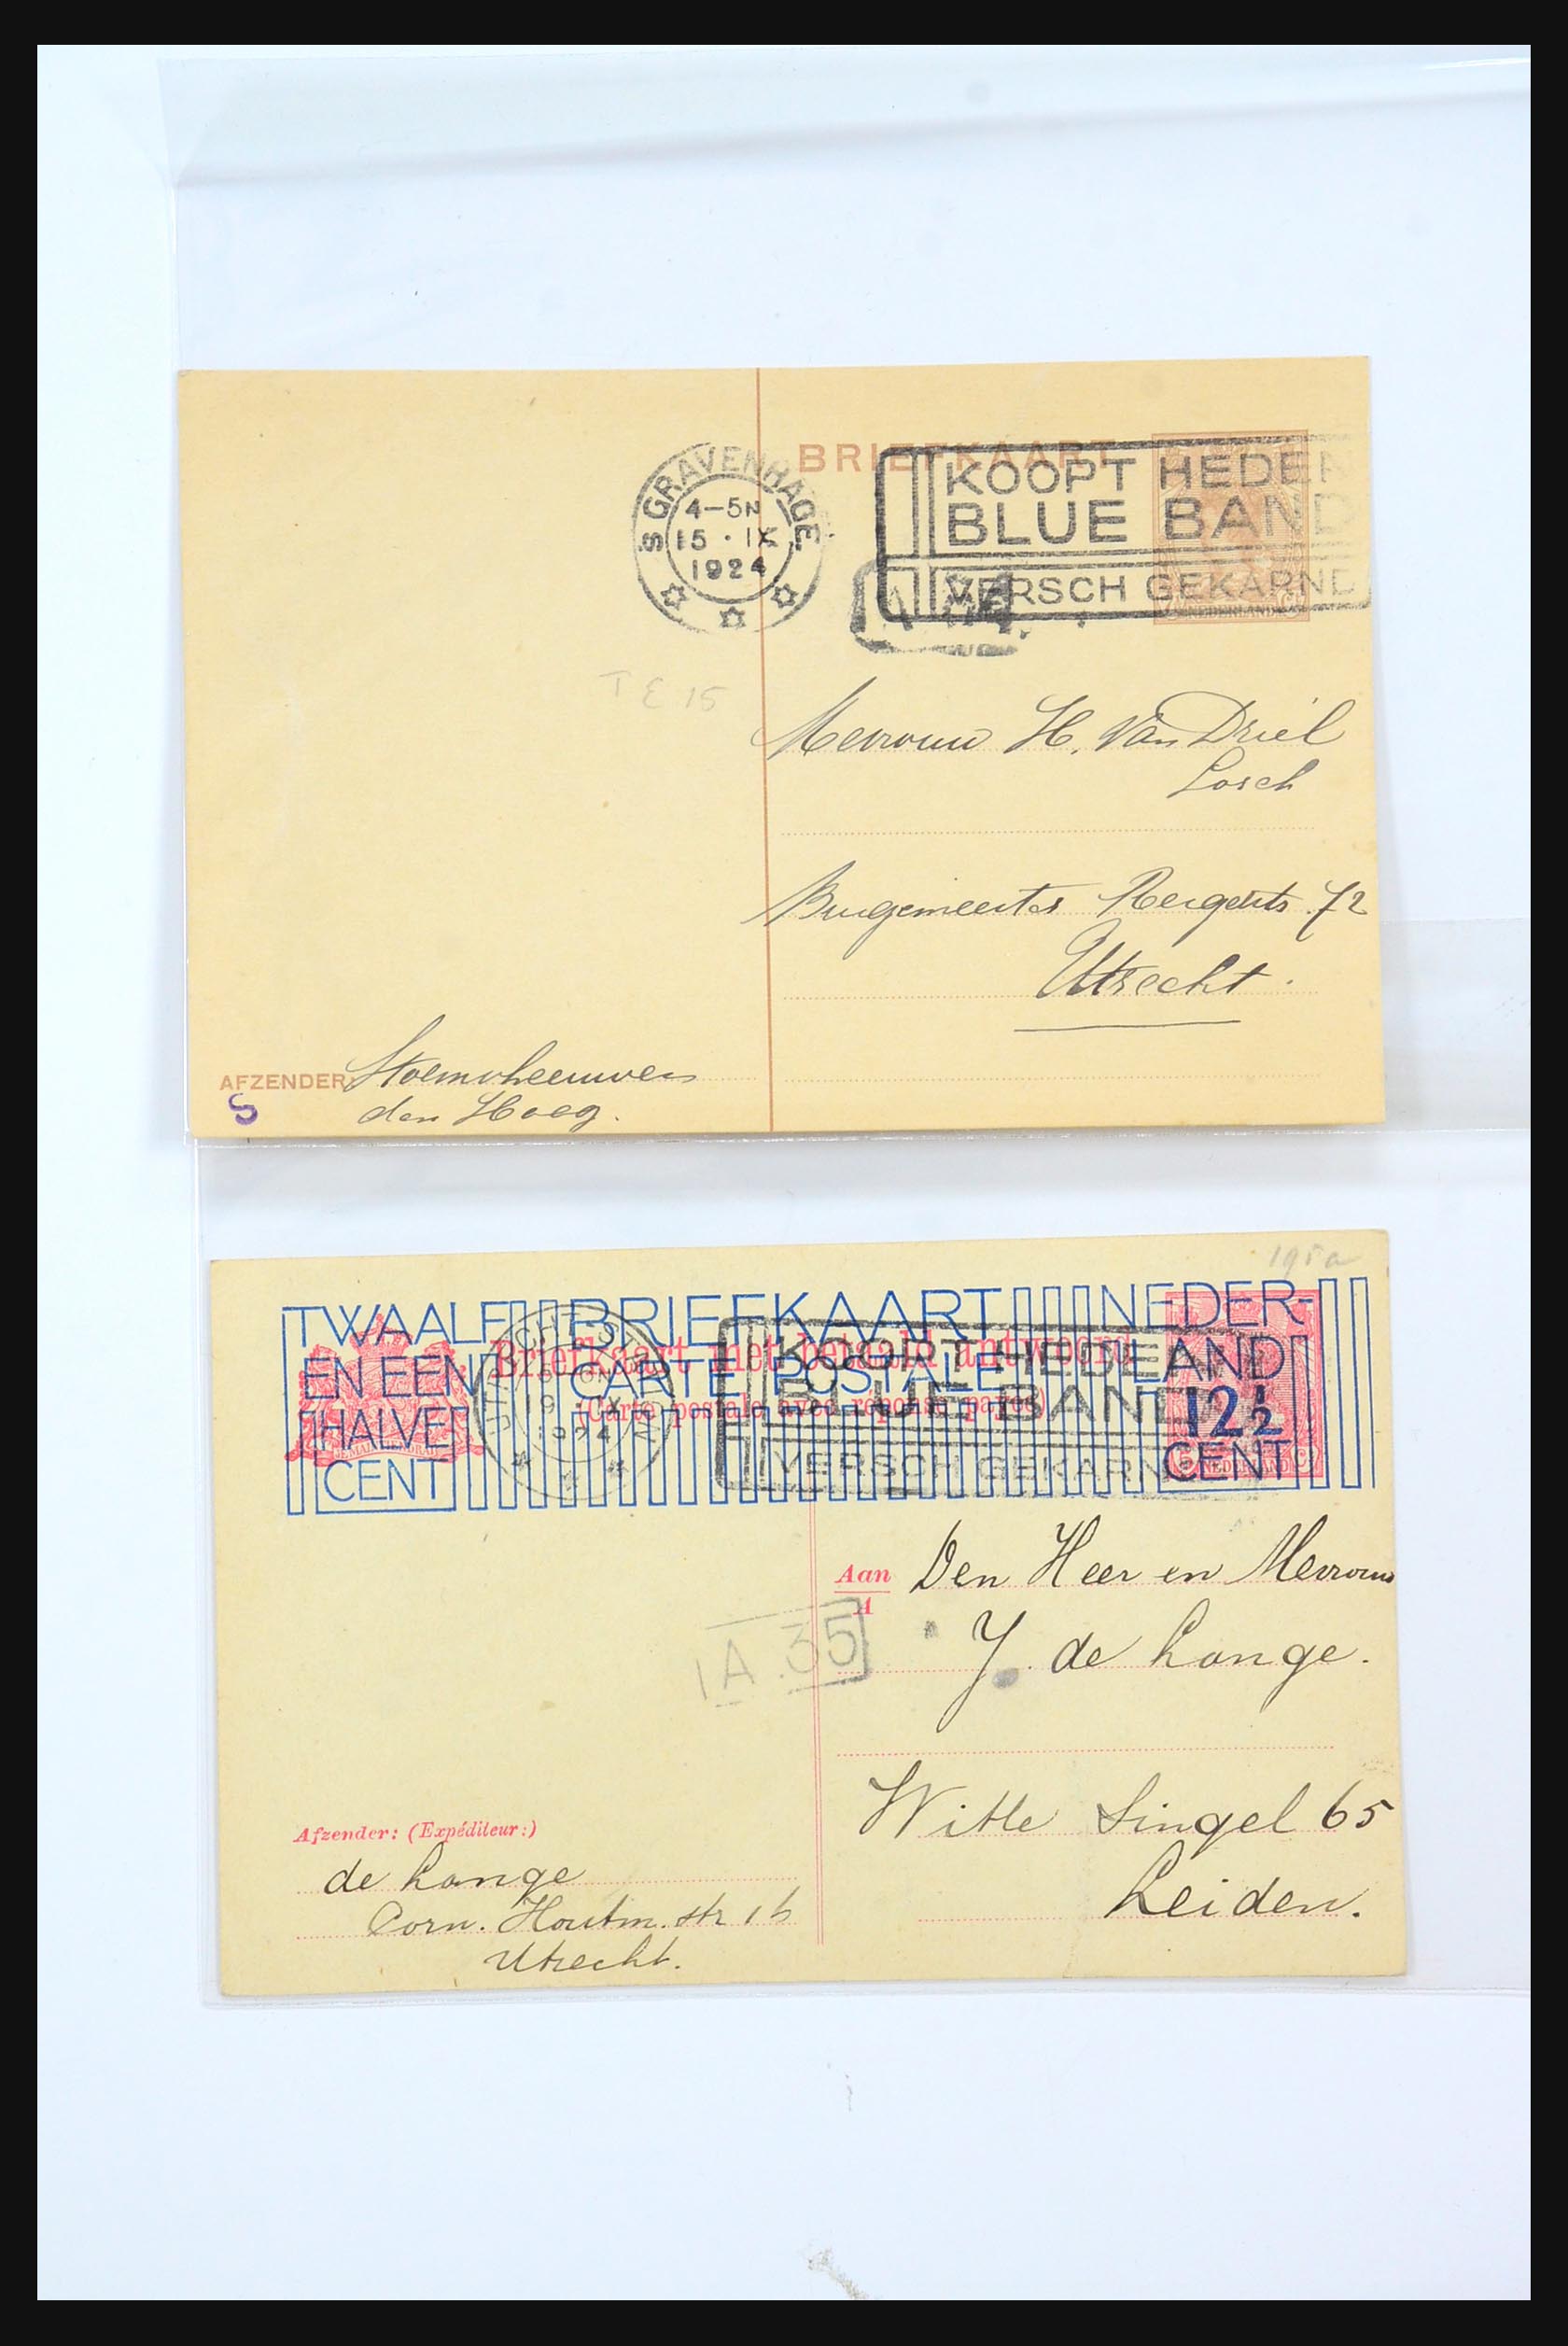 BRIEFKAART
'S GRAVENHAGE
4-5N
15 · IX
1924
KOOPT HEDEN
BLUE BAND
VERSCH GEKARND
NEDERLAND
T E 15
Mevrouw H. van Driel
Losch
72
Utrecht.
AFZENDER:
den Haag.
S
195a
TWAALF BRIEFKAART NEDER-
EN EEN CARTE POSTALE LAND
HALVE 12½
CENT CENT
Briefkaart met betaald antwoord
(Carte postale avec réponse payée)
UTRECHT
1924
KOOPT HEDEN
BLUE BAND
VERSCH GEKARN
NEDERLAND
Aan
A
Den Heer en Mevrouw
J. de Lange.
1A 35
Witte Singel 65
Leiden.
Afzender: (Expéditeur:)
de Lange
Corn. Houtm. str 1b
Utrecht.